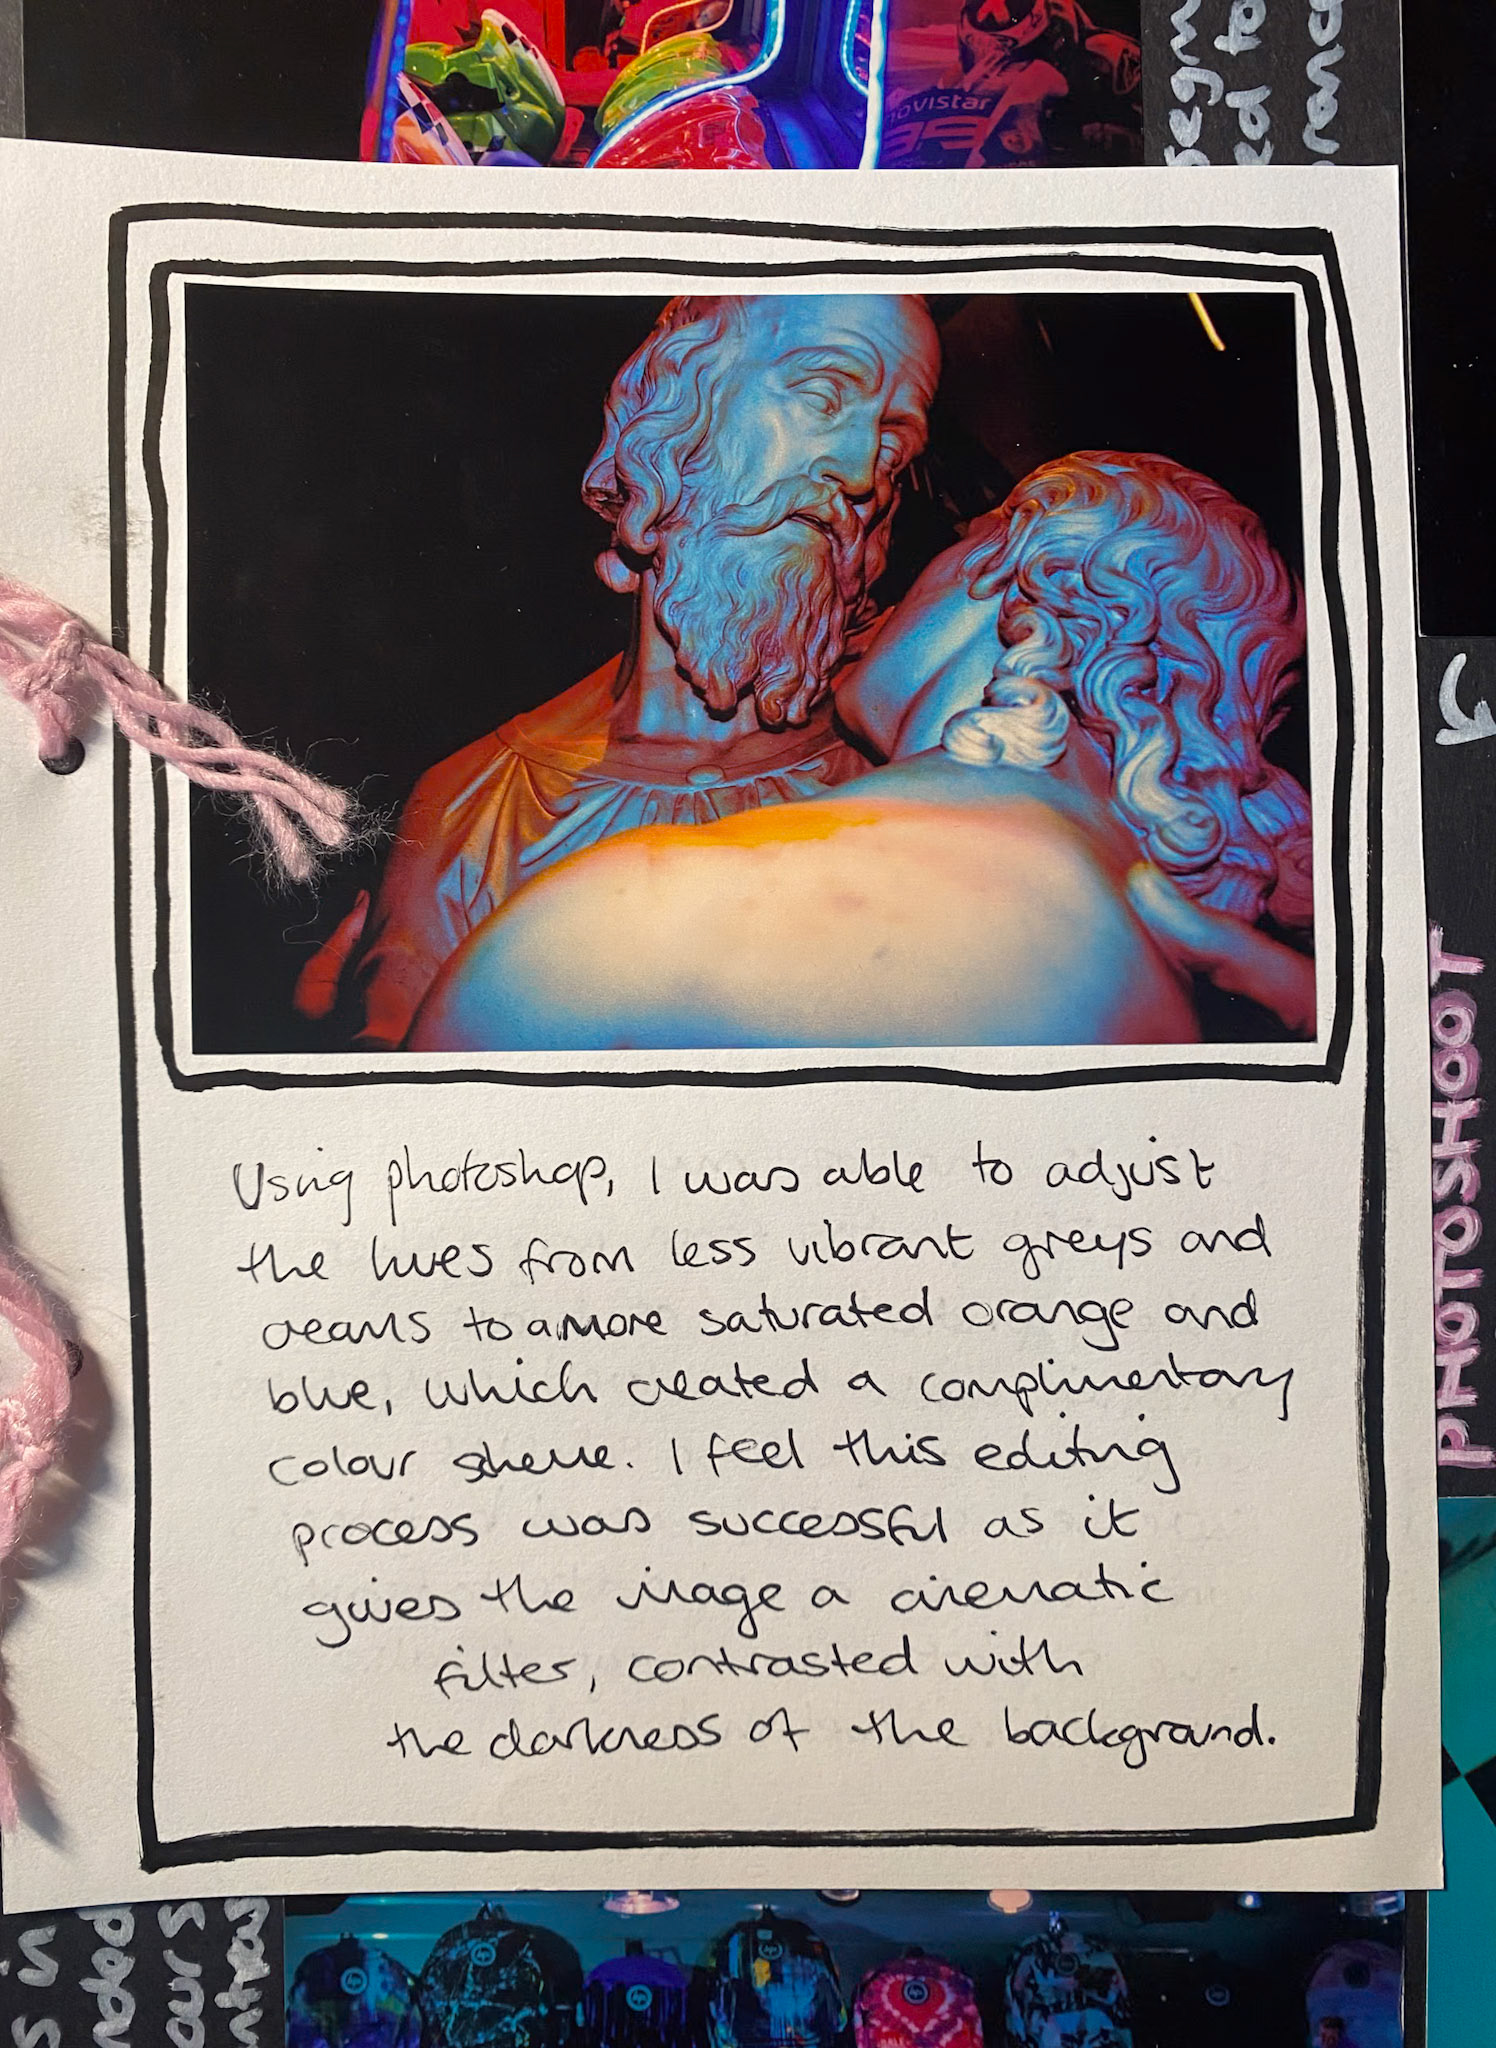 Using photoshop, I was able to adjust
the hues from less vibrant greys and
creams to a more saturated orange and
blue, which created a complimentary
colour scheme. I feel this editing
process was successful as it
gives the image a cinematic
filter, contrasted with
the darkness of the background.
PHOTOSHOOT
movistar
99